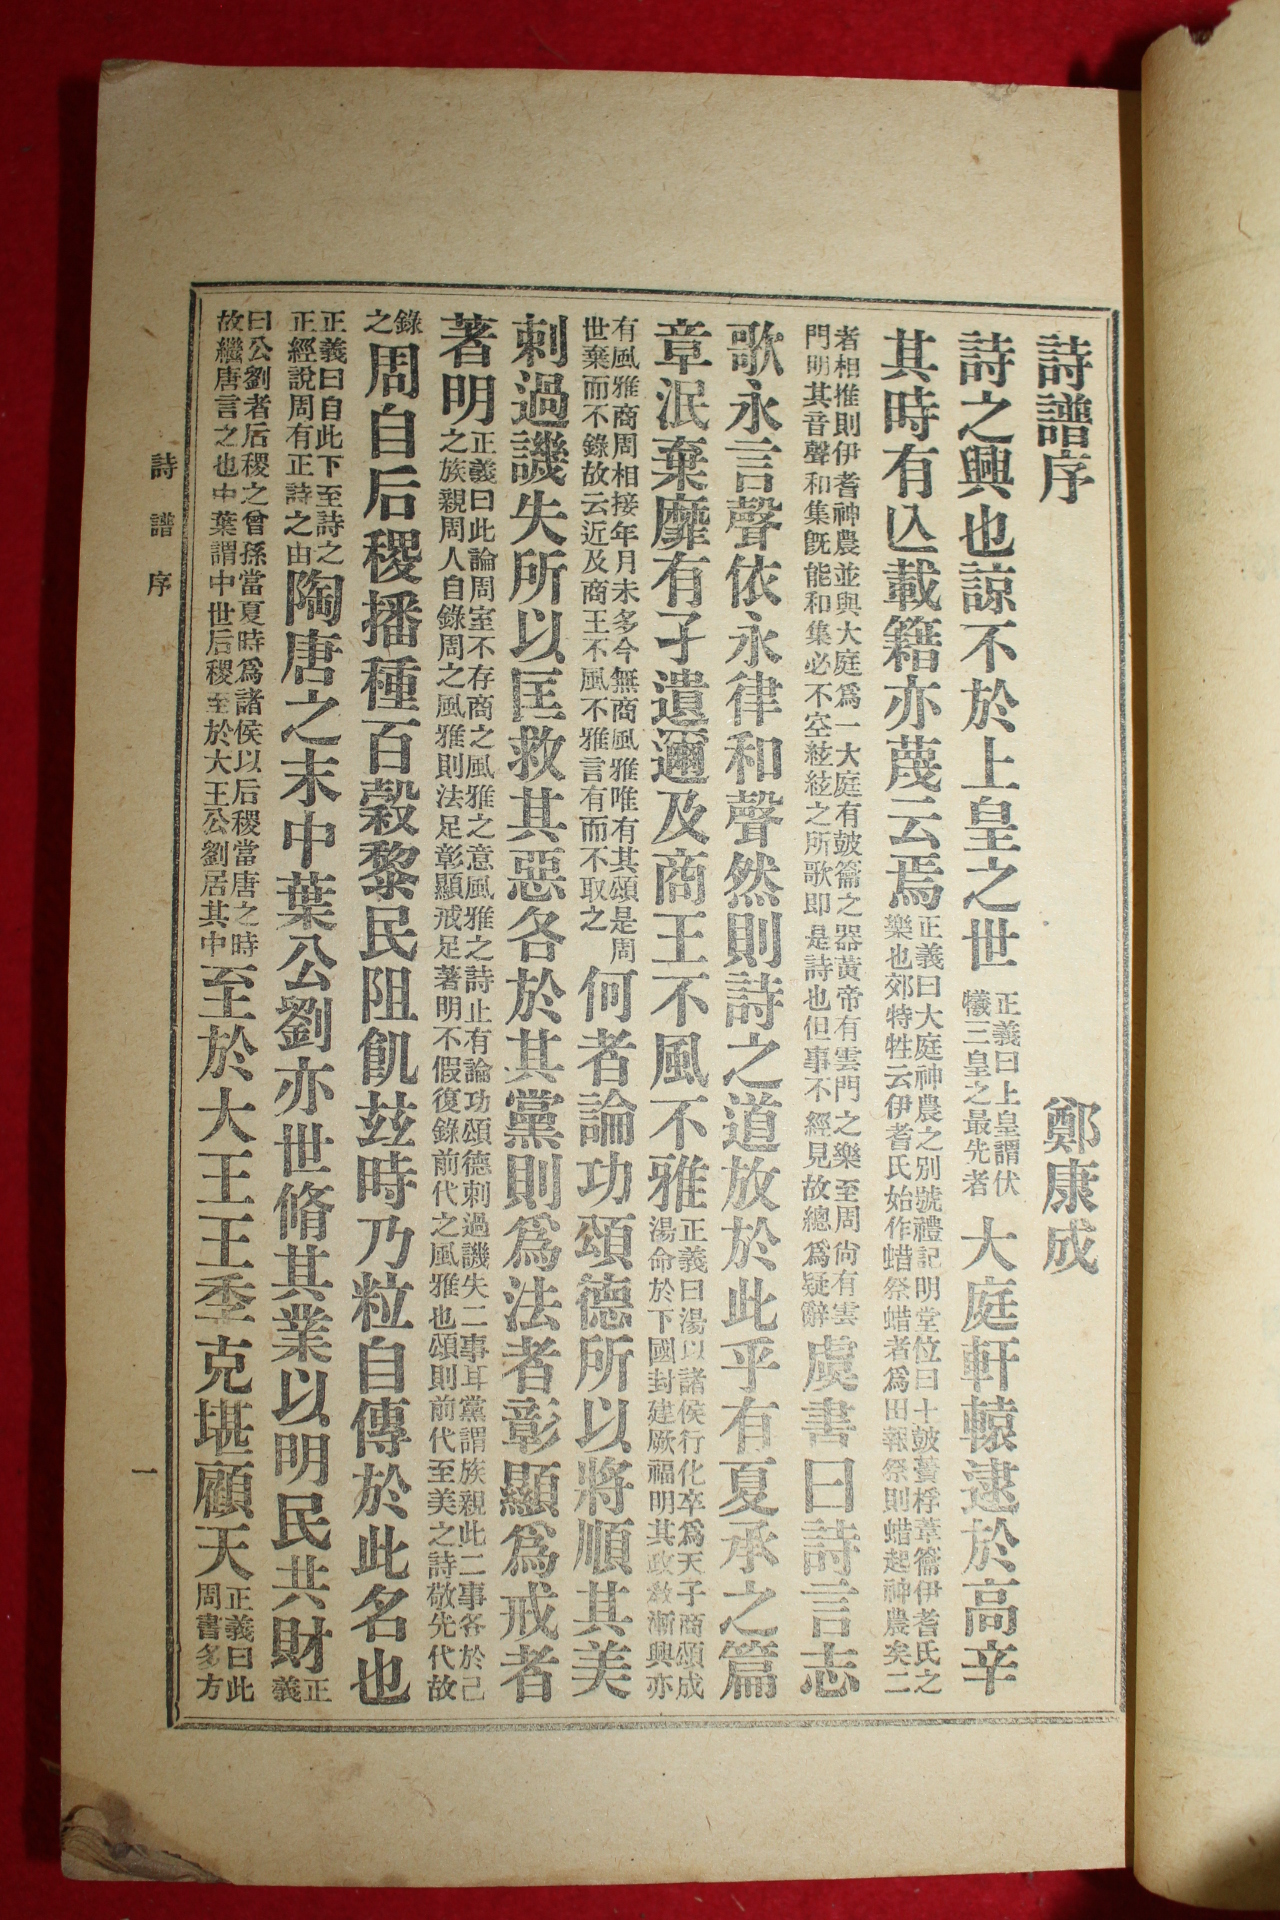 詩譜序 鄭康成
詩之興也諒不於上皇之世
正義曰上皇謂伏
犧三皇之最先者
大庭軒轅逮於高辛
其時有亾載籍亦蔑云焉
正義曰大庭神農之別號禮記明堂位曰十皷蕢桴葦籥伊耆氏之
樂也郊特牲云伊耆氏始作蜡祭蜡者爲田報祭則蜡起神農矣二
者相推則伊耆神農並與大庭爲一大庭有皷籥之器黃帝有雲門之樂至周尙有雲
門明其音聲和集旣能和集必不空絃絃之所歌即是詩也但事不經見故總爲疑辭
虞書曰詩言志
歌永言聲依永律和聲然則詩之道放於此乎有夏承之篇
章泯棄靡有孑遺邇及商王不風不雅
正義曰湯以諸侯行化卒爲天子商頌成
湯命於下國封建厥福明其政敎漸興亦
有風雅商周相接年月未多今無商風雅唯有其頌是周
世棄而不錄故云近及商王不風不雅言有而不取之
何者論功頌德所以將順其美
刺過譏失所以匡救其惡各於其黨則爲法者彰顯爲戒者
著明
正義曰此論周室不存商之風雅之意風雅之詩止有論功頌德刺過譏失二事耳黨謂族親此二事各於己
之族親周人自錄周之風雅則法足彰顯戒足著明不假復錄前代之風雅也頌則前代至美之詩敬先代故
錄
之
周自后稷播種百穀黎民阻飢玆時乃粒自傳於此名也
正義曰自此下至詩之
正經說周有正詩之由
陶唐之末中葉公劉亦世脩其業以明民共財
正
義
曰公劉者后稷之曾孫當夏時爲諸侯以后稷當唐之時
故繼唐言之也中葉謂中世后稷至於大王公劉居其中
至於大王王季克堪顧天
正義曰此
周書多方
詩譜序
一